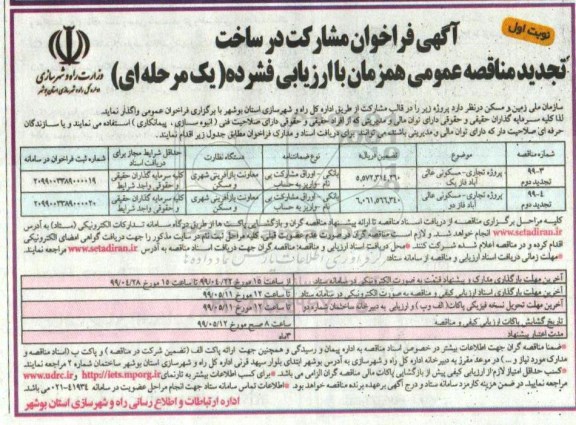 نوبت اول
آگهی فراخوان مشارکت در ساخت
تجدید مناقصه عمومی همزمان با ارزیابی فشرده (یک مرحله ای)
وزارت راه و شهرسازی
اداره کل راه و شهرسازی استان بوشهر
سازمان ملی زمین و مسکن درنظر دارد پروژه زیر را در قالب مشارکت از طریق اداره کل راه و شهرسازی استان بوشهر با برگزاری فراخوان عمومی واگذار نماید.
لذا کلیه سرمایه گذاران حقیقی و حقوقی دارای توان مالی و مدیریتی که از افراد حقیقی و حقوقی دارای صلاحیت فنی (انبوه سازی، پیمانکاری) استفاده می نمایند و یا سازندگان
حرفه ای صلاحیت دار که دارای توان مالی و مدیریتی باشند می توانند برای دریافت اسناد و مدارک فراخوان مطابق جدول زیر اقدام نمایند.
شماره مناقصه موضوع تضمین (ریال) نوع ضمانتنامه دستگاه نظارت حداقل شرایط مجاز برای دریافت اسناد شماره ثبت فراخوان در سامانه
۹۹-۳ تجدید دوم پروژه تجاری- مسکونی عالی آباد فاز یک ۵,۵۷۲,۳۱۴,۲۶۰ بانکی - اوراق مشارکت بی نام -واریز به حساب معاونت بازآفرینی شهری و مسکن کلیه سرمایه گذاران حقیقی و حقوقی واجد شرایط ۲۰۹۹۰۰۳۳۸۹۰۰۰۰۱۹
۹۹-۴ تجدید دوم پروژه تجاری- مسکونی عالی آباد فاز دو ۶,۰۶۱,۵۶۶,۳۴۰ بانکی - اوراق مشارکت بی نام -واریز به حساب معاونت بازآفرینی شهری و مسکن کلیه سرمایه گذاران حقیقی و حقوقی واجد شرایط ۲۰۹۹۰۰۳۳۸۹۰۰۰۰۲۰
کلیه مراحل برگزاری مناقصه از دریافت اسناد مناقصه تا ارائه پیشنهاد مناقصه گران و بازگشایی پاکت ها از طریق درگاه سامانه تدارکات الکترونیکی (ستاد) به آدرس
www.setadiran.ir انجام خواهد شد و لازم است مناقصه گران در صورت عدم عضویت قبلی، کلیه مراحل ثبت نام در سایت مذکور را جهت دریافت گواهی امضای الکترونیکی
اقدام کرده و در مناقصه اعلام شده شرکت کنند. *محل دریافت اسناد ارزیابی و مناقصه: مناقصه گران جهت دریافت اسناد مناقصه به آدرس www.setadiran.ir مراجعه نمایند.
*مهلت زمانی دریافت اسناد ارزیابی و مناقصه از سامانه ستاد:
آخرین مهلت بارگذاری مدارک و پیشنهاد قیمت به صورت الکترونیکی در سامانه ستاد از ساعت ۱۵ مورخ ۹۹/۰۴/۲۲ تا ساعت ۱۵ مورخ ۹۹/۰۴/۲۸
آخرین مهلت بارگذاری اسناد ارزیابی کیفی و مناقصه به صورت الکترونیکی در سامانه ستاد تا ساعت ۱۲ مورخ ۹۹/۰۵/۱۱
آخرین مهلت تحویل نسخه فیزیکی پاکات (الف وب) و ارزیابی به دبیرخانه ساختمان شماره دو تا ساعت ۱۲ مورخ ۹۹/۰۵/۱۱
تاریخ گشایش پاکات ارزیابی کیفی و مناقصه ساعت ۸ صبح مورخ ۹۹/۰۵/۱۲
مدت اعتبار پیشنهاد ۳ماه
*ضمنا مناقصه گران جهت اطلاعات بیشتر در خصوص اسناد مناقصه به اداره پیمان و رسیدگی و همچنین جهت ارائه پاکت الف (تضمین شرکت در مناقصه) و پاکت ب (اسناد مناقصه و
مدارک مورد نیاز و ...) در موعد مقرر به دبیرخانه اداره کل راه و شهرسازی به آدرس بوشهر ابتدای بلوار سپهبد قرنی اداره کل راه و شهرسازی استان بوشهر ساختمان شماره ۲ مراجعه نمایند.
*کسب حداقل امتیاز لازم از ارزیابی کیفی پیش از بازگشایی پاکات مالی مناقصه گران الزامی می باشد. *برای کسب اطلاعات بیشتر به تارنماهای http://iets.mporg.ir و www.nlho.ir
مراجعه نمایید. در ضمن هزینه کارمزد سامانه ستاد و درج آگهی برعهده برنده مناقصه خواهد بود *اطلاعات تماس سامانه ستاد جهت انجام مراحل عضویت در سامانه ۴۱۹۳۴-۰۲۱ می باشد.
اداره ارتباطات و اطلاع رسانی راه و شهرسازی استان بوشهر